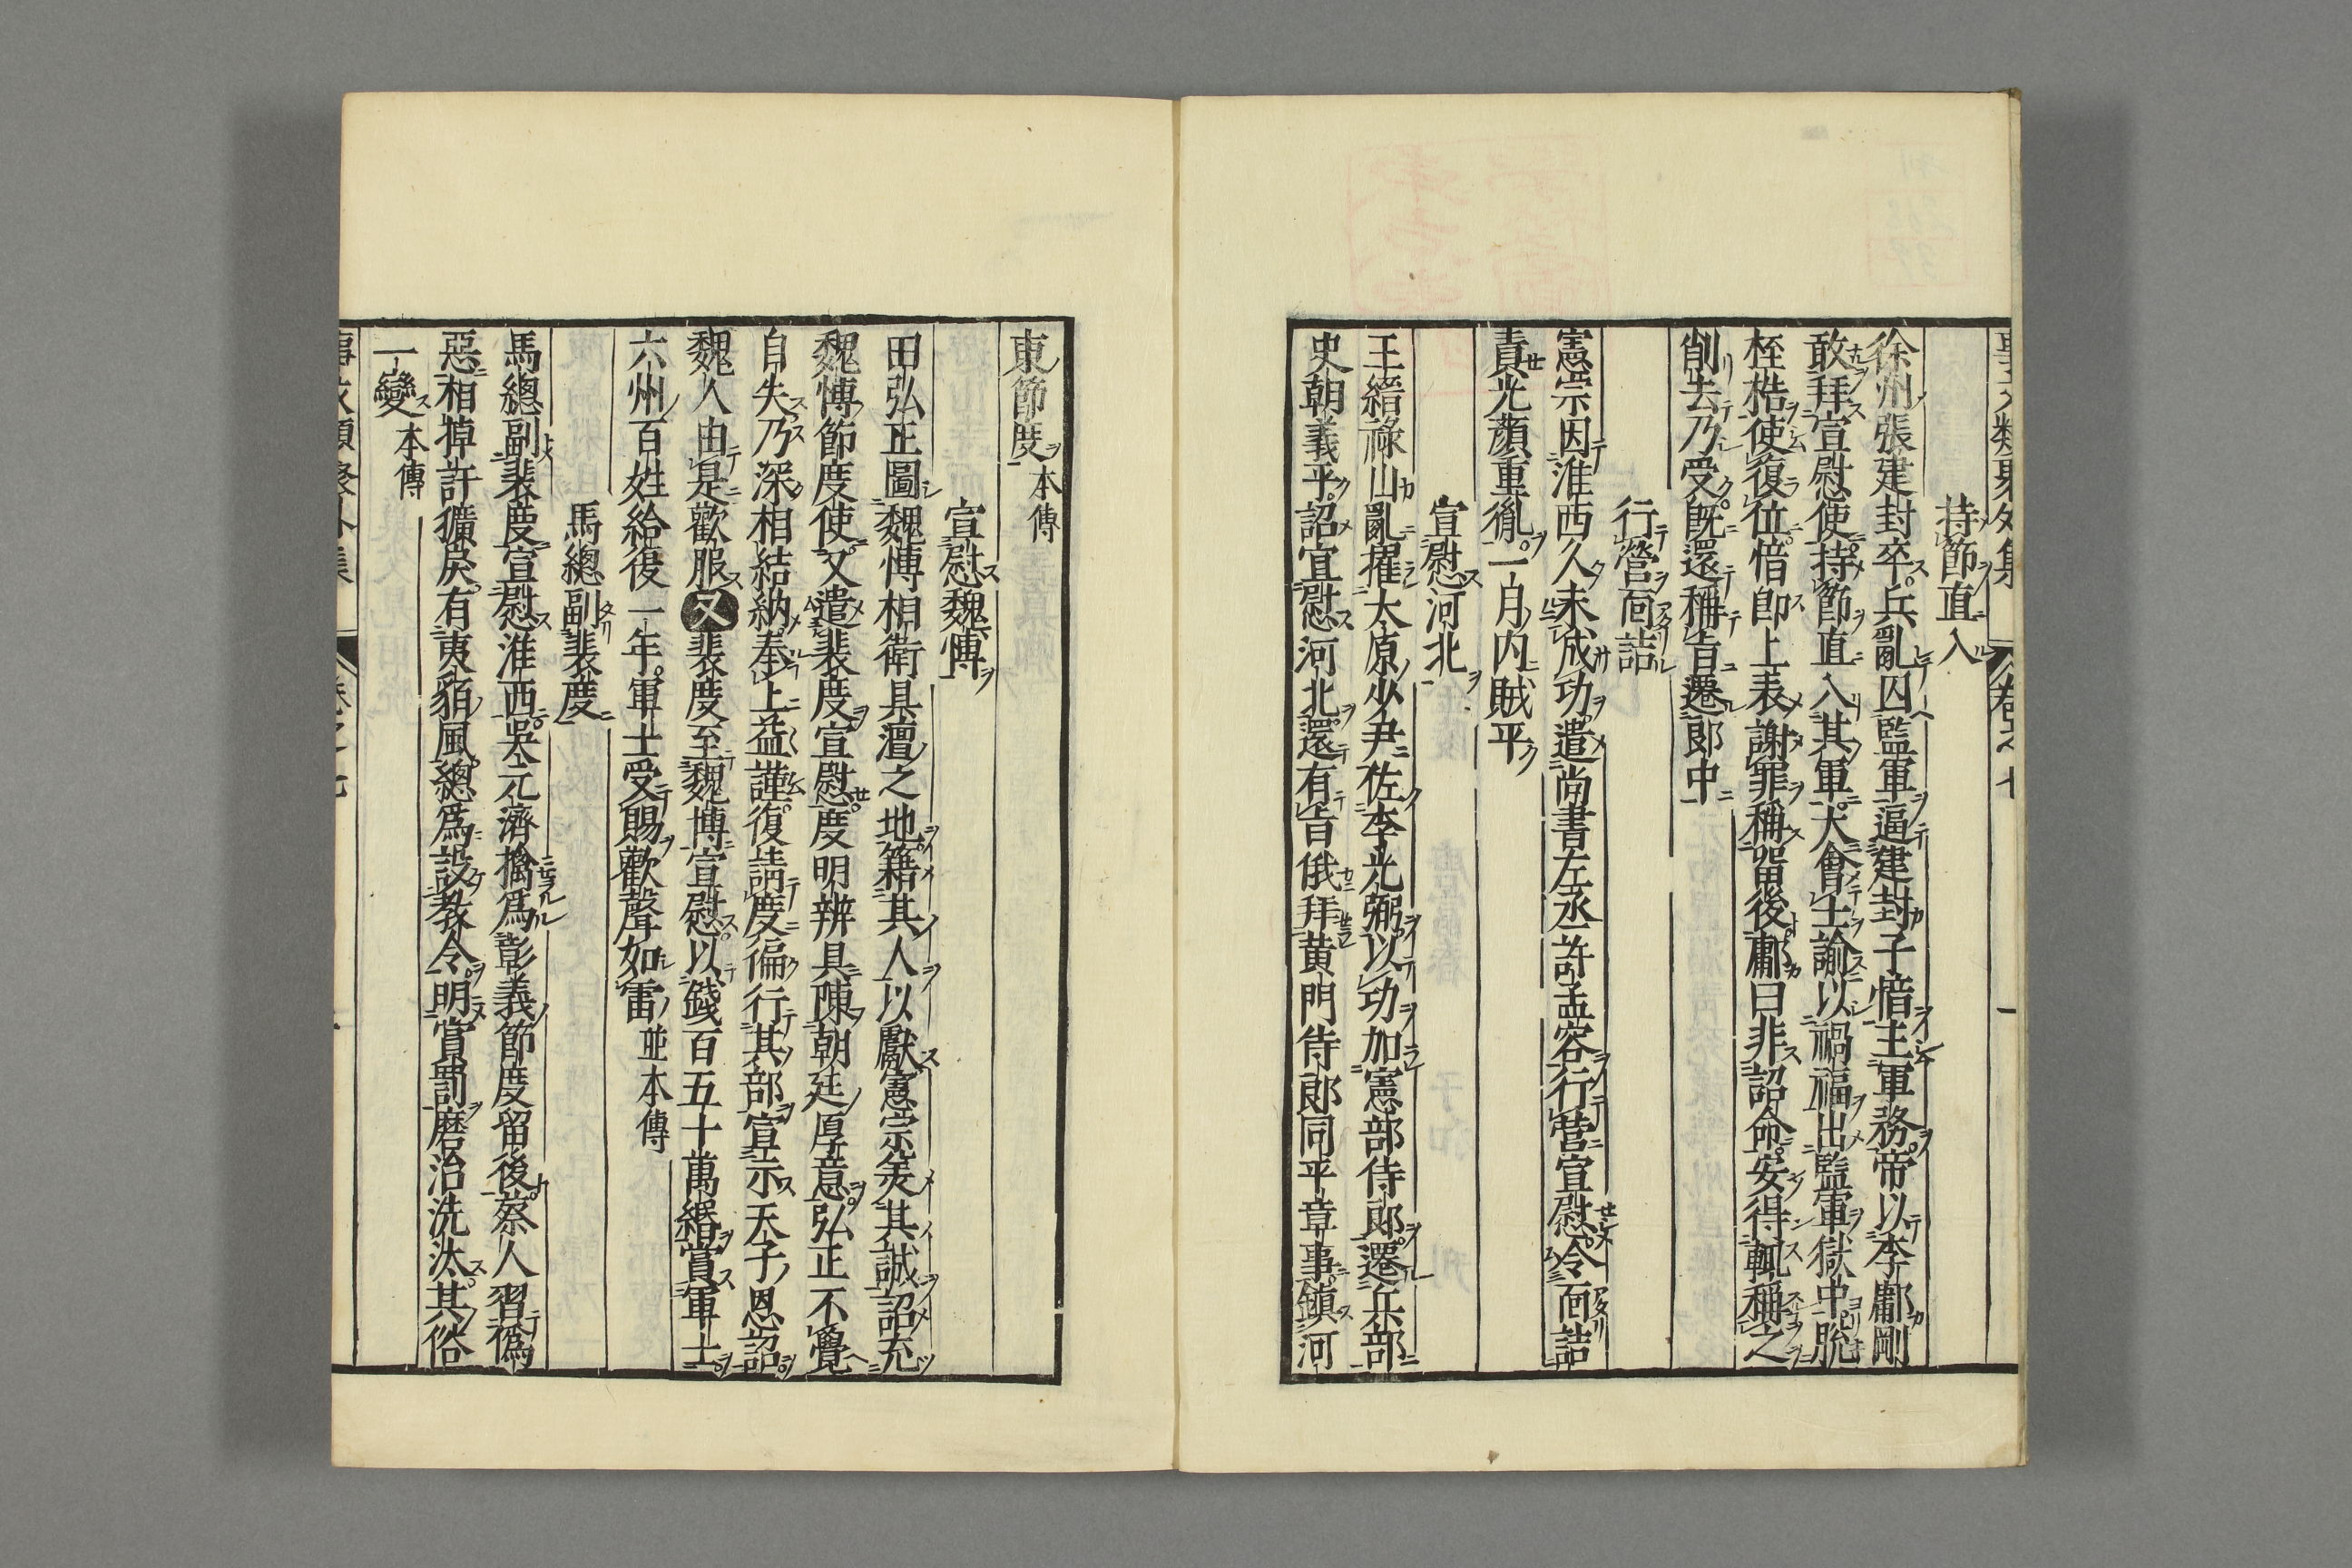 持節直入
徐州張建封卒兵亂囚監軍逼建封子愔主軍務帝以李鄘剛
敢拜宣慰使持節直入其軍大會士諭以禍福出監軍獄中脫
桎梏使復位愔即上表謝罪稱留後鄘曰非詔命安得輒稱之
削去乃受既還稱旨遷郎中
行營面詰
憲宗因淮西久未成功遣尚書左丞許孟容行營宣慰令面詰
責光顔重胤一月內賊平
宣慰河北
王縉祿山亂擢太原少尹佐李光弼以功加憲部侍郎遷兵部
史朝義平詔宣慰河北還有旨俄拜黃門侍郎同平章事鎮河
東節度本傳
宣慰魏愽
田弘正圖魏愽相衛具澶之地籍其人以獻憲宗羙其誠詔充
魏愽節度使又遣裴度宣慰度明辨具陳朝廷厚意弘正不覺
自失乃深相結納奉上益謹復請度徧行其部宣示天子恩詔
魏人由是歡服又裴度至魏博宣慰以錢百五十萬緡賞軍士
六州百姓給復一年軍士受賜歡聲如雷並本傳
馬總副裴度
馬總副裴度宣慰淮西吳元濟擒爲彰義節度留後蔡人習僞
惡相掉許獷戾有夷貊風總爲設教令明賞罰磨治洗汰其俗
一變本傳